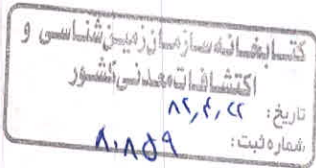 کتابخانه سازمان زمین‌شناسی و
اکتشافات معدنی کشور
تاریخ: ۸۲,۴,۲۲
شماره ثبت: ۸۰۸۵۹